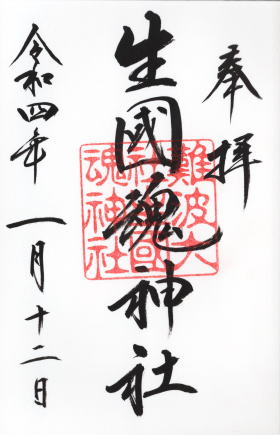 奉拝
生國魂神社
難波大社生國魂神社
令和四年一月十二日